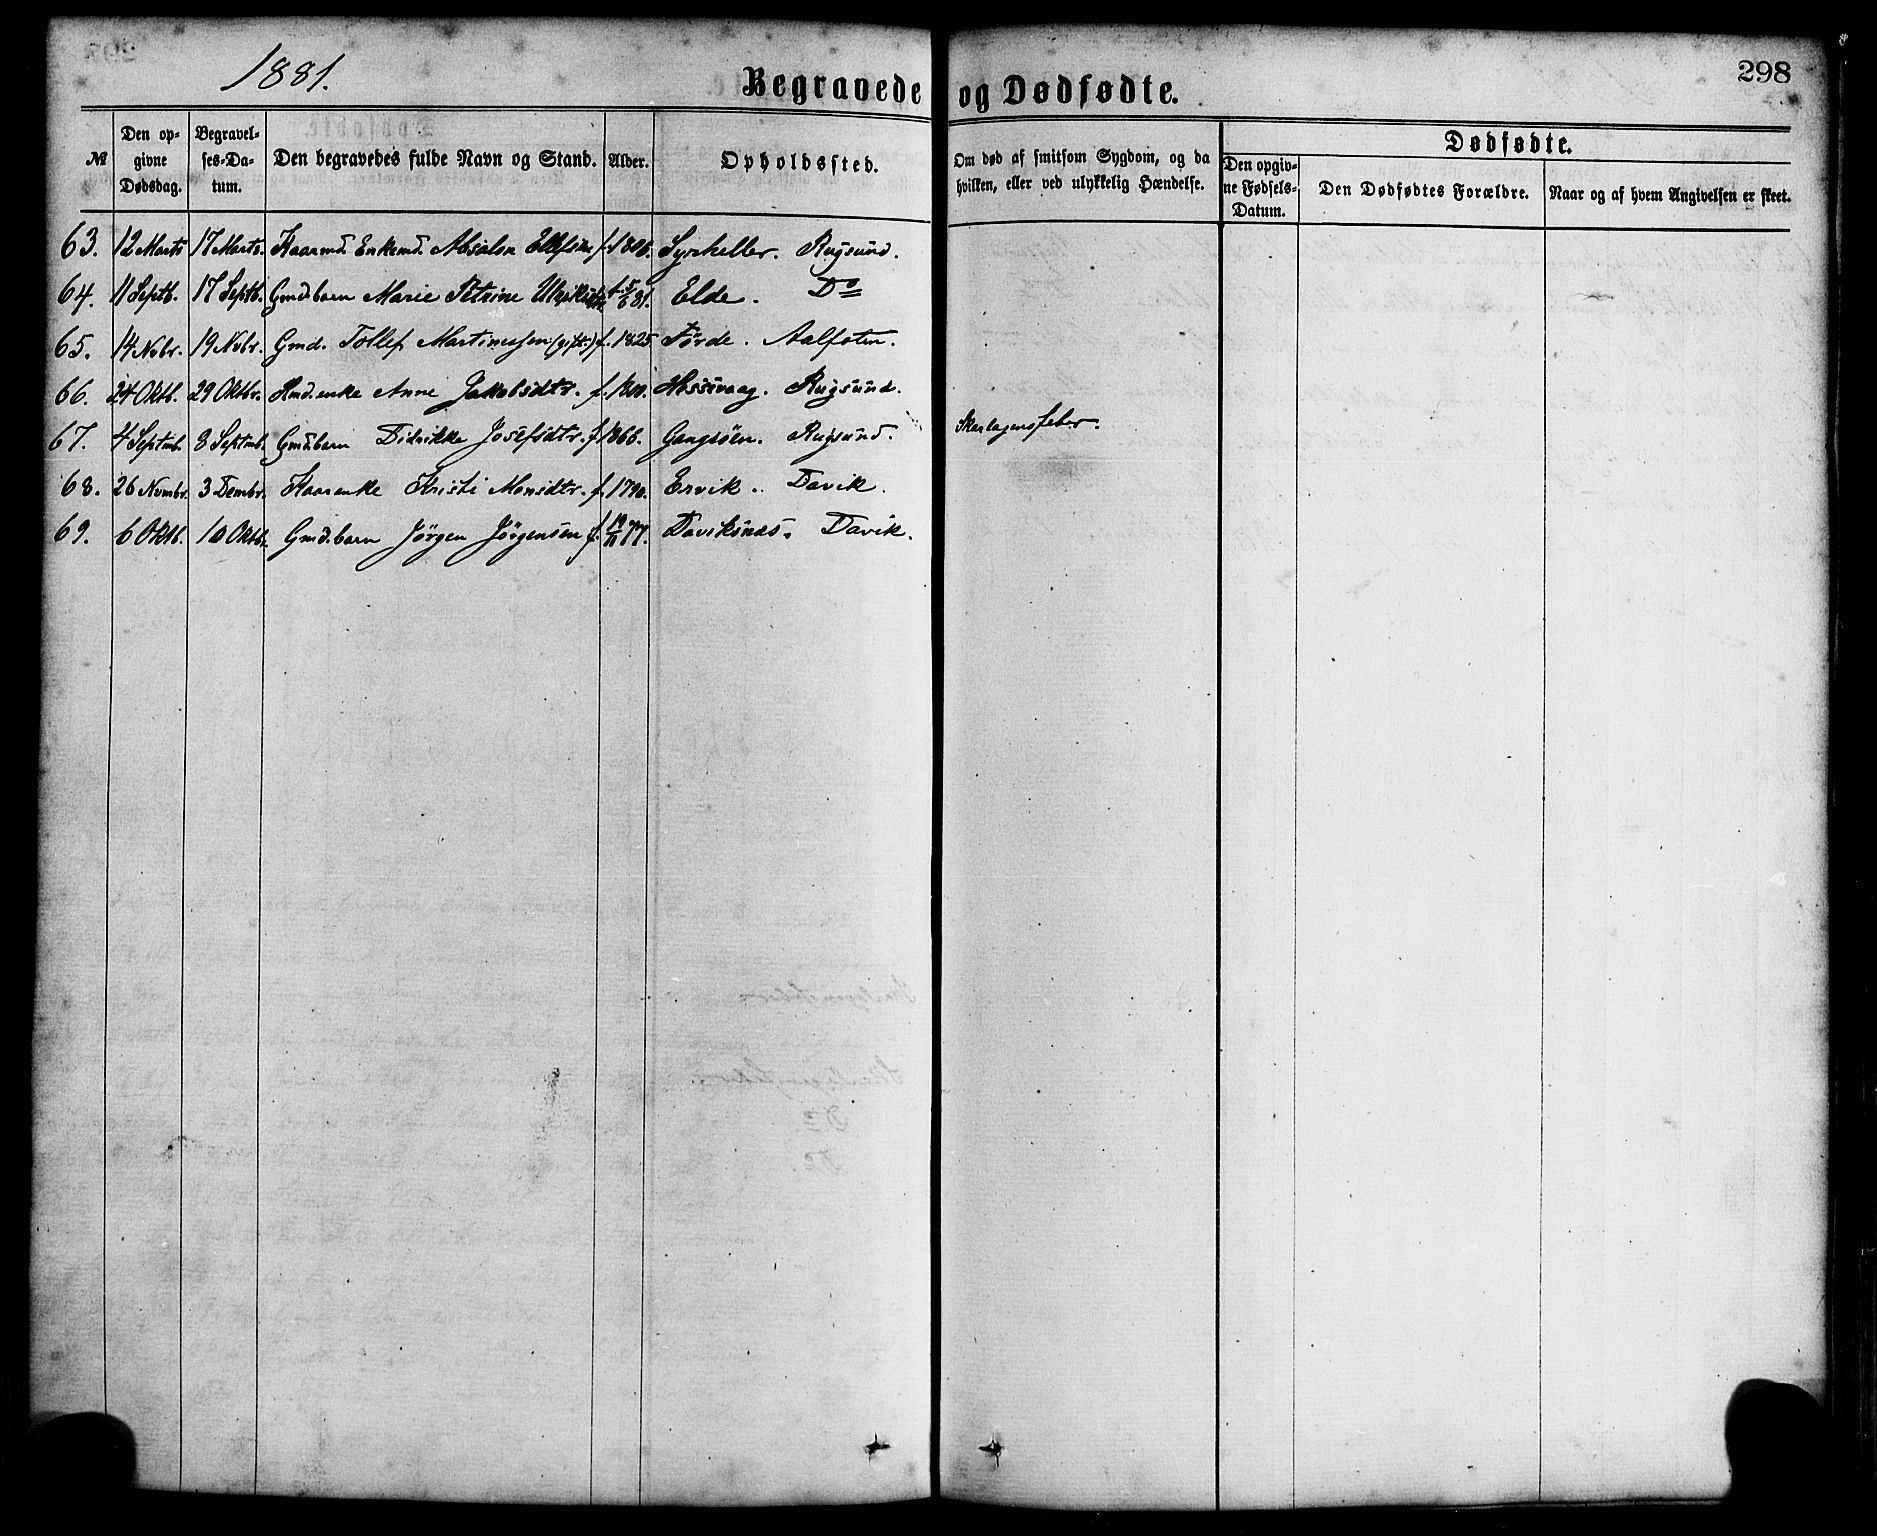 1881.
Begravede og Dødfødte.
298
№
Den opgivne Dødsdag.
Begravelses-Datum.
Den begravedes fulde Navn og Stand.
Alder.
Opholdssted.
Om død af smitsom Sygdom, og da hvilken, eller ved ulykkelig Hændelse.
Dødfødte.
Den opgivne Fødsels-Datum.
Den Dødfødtes Forældre.
Naar og af hvem Angivelsen er skeet.
63. 12 Marts 17 Marts. Kaarmd. Enkemd. Absalon Ellefsen f. 1806. Rugsund.
64. 11 Septb. 17 Septb. Gmdbarn Marie Petrine f. 5/6 81. Elde. Do
65. 14 Nvbr. 19 Nvbr. Gmd. Tollef Martinussen (gift.) f. 1825 Førde. Aalfoten.
66. 24 Oktb. 29 Oktbr. Hmd.enke Anne Jakobsdtr. f. 1800. Hessevaag. Rugsund.
67. 4 Septmb. 8 Septmb. Gmdbarn Didrikke Josefsdtr. f. 1866. Gangsøen. Rugsund. Skarlagensfeber.
68. 26 Nvmbr. 3 Dembr. Kaarenke Kristi Monsdtr. f. 1790. Ervik. Davik.
69. 6 Oktb. 10 Oktb. Gmd.barn Jörgen Jörgensen f. 19/11 77. Daviksnæs. Davik.